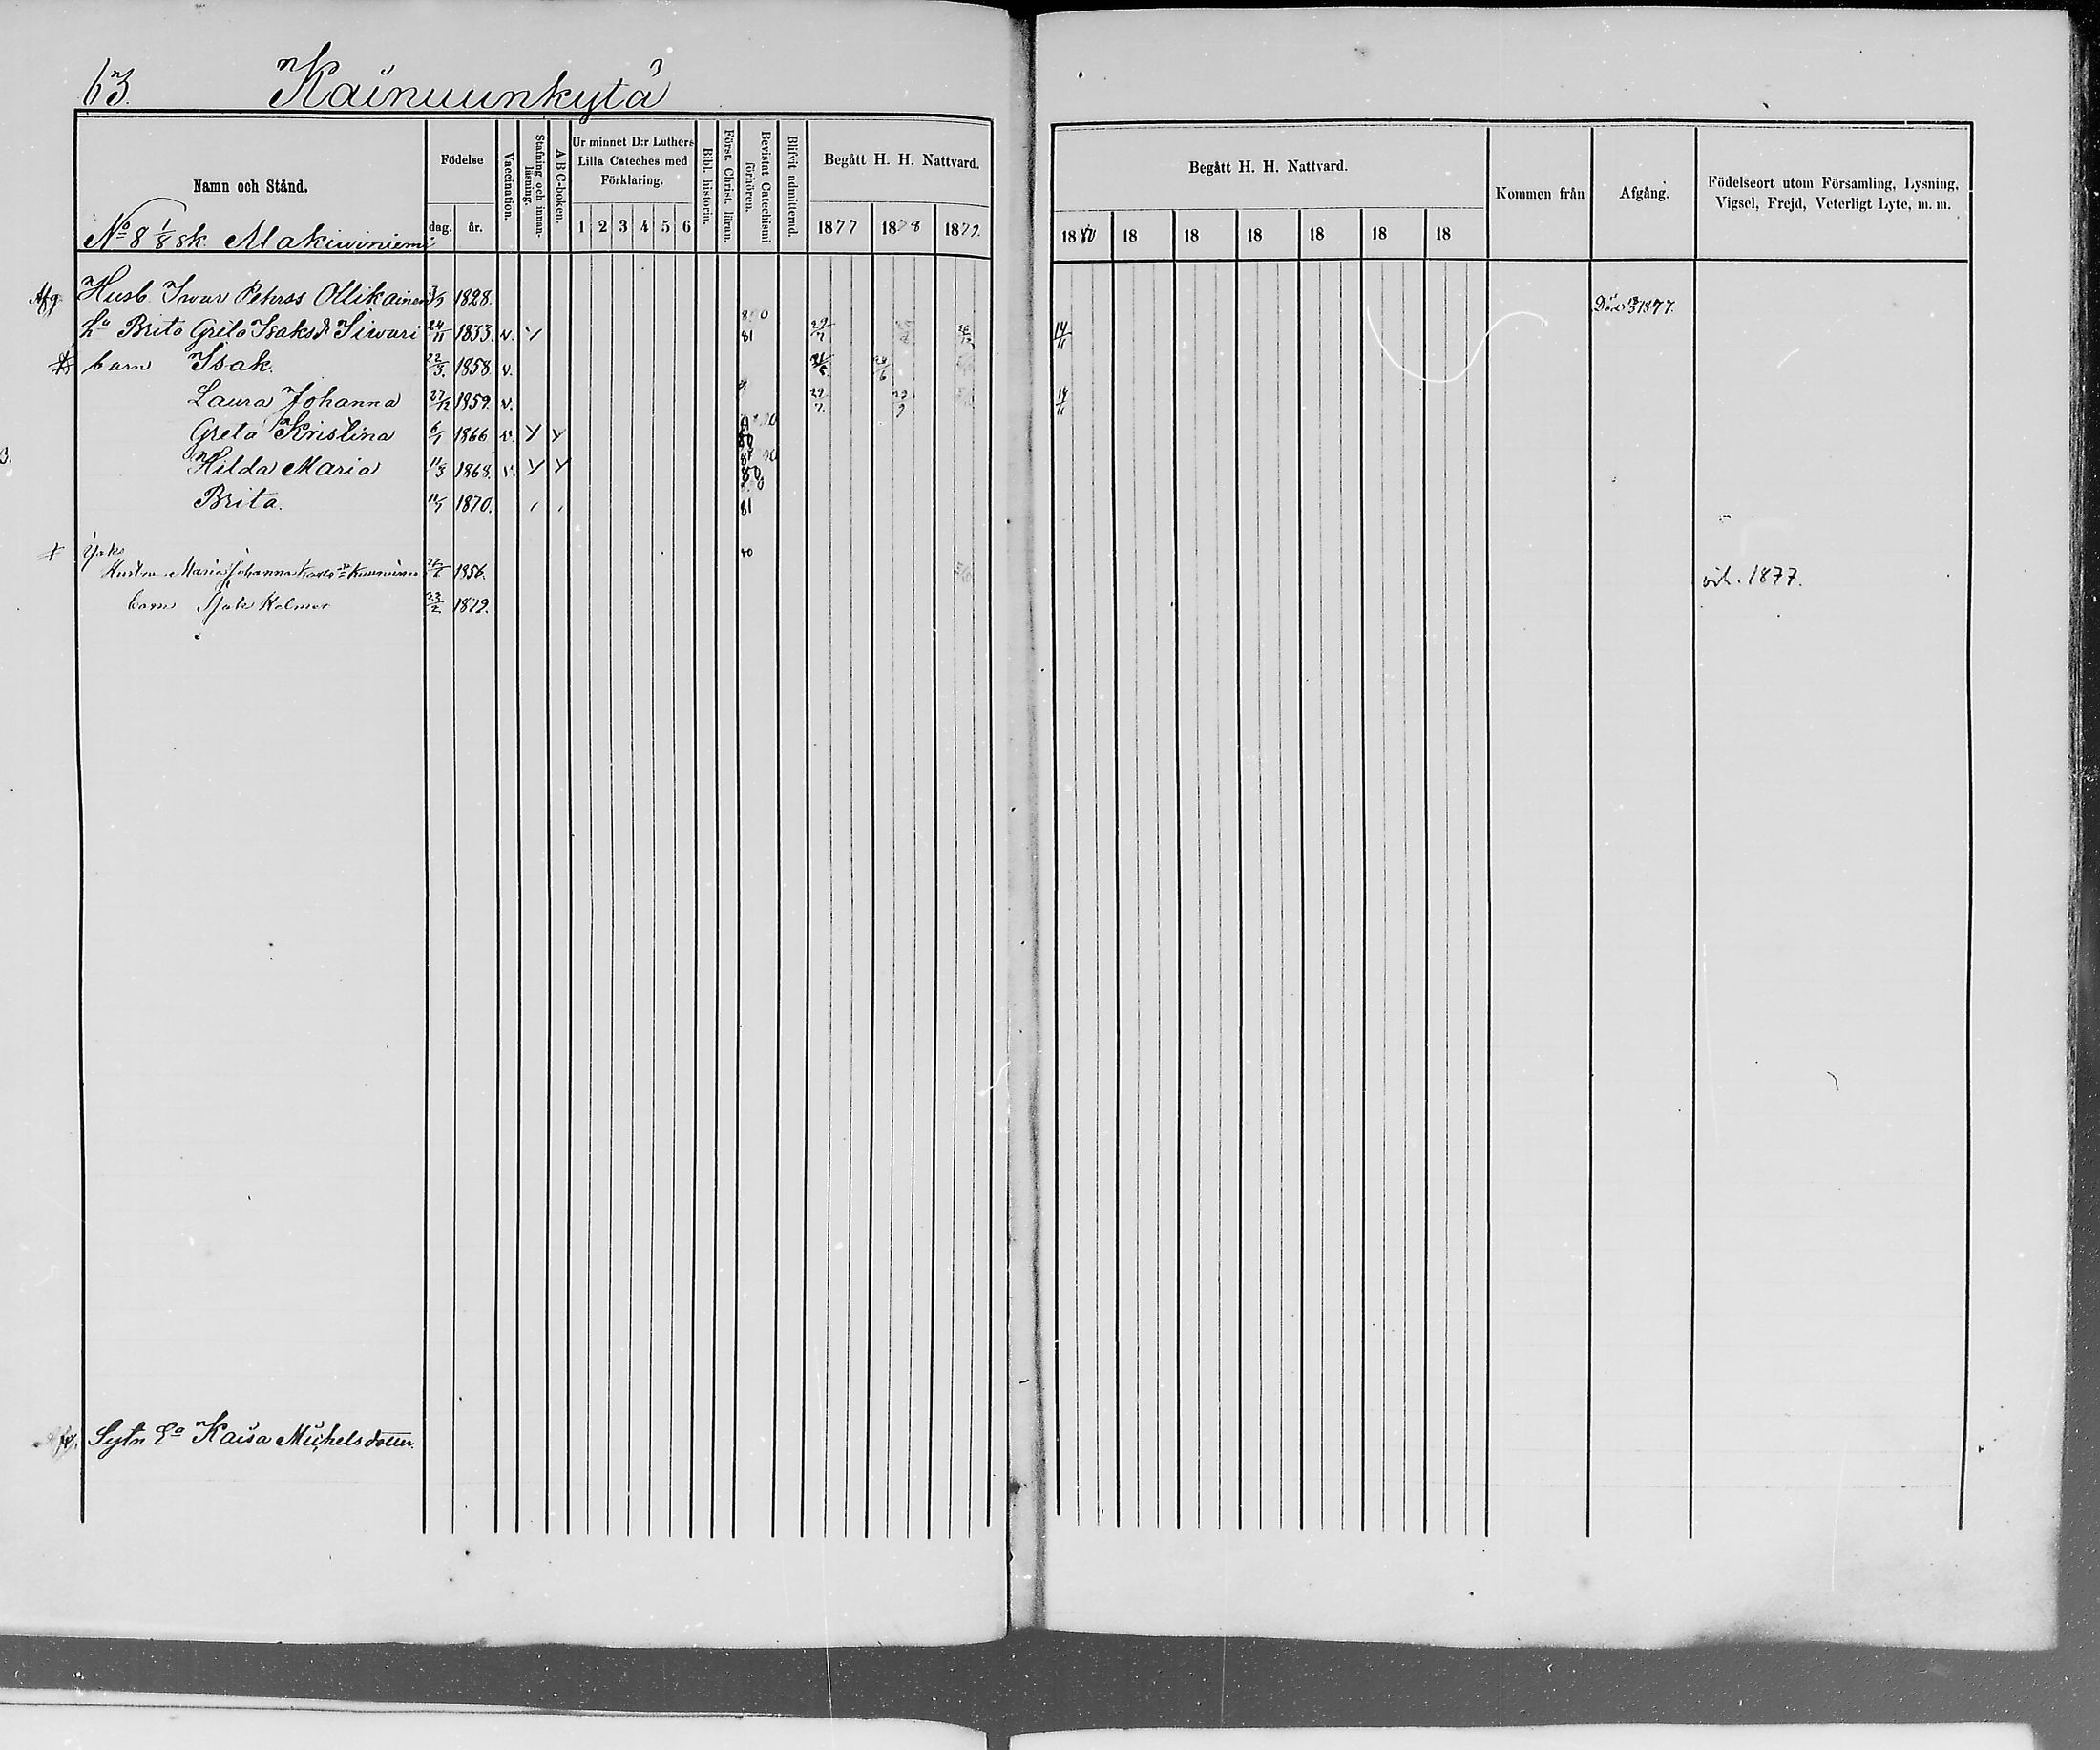 63. Kainuunkylä
Namn och Stånd.
Födelse
dag. år.
Vaccination.
Stafning och innanläsning.
A B C-boken.
Ur minnet D:r Luthers Lilla Cateches med Förklaring.
1 2 3 4 5 6
Bibl. historia.
Först. Christ. läran.
Bevistat Catechismi förhören.
Blifvit admitterad.
Begått H. H. Nattvard.
1877 1878 1879.
Begått H. H. Nattvard.
1880 18 18 18 18 18 18
Kommen från
Afgång.
Födelseort utom Församling, Lysning, Vigsel, Frejd, Veterligt Lyte, m. m.
No 8 1/8 sk. Makiwiniemi
Afg Husb. Iwar Pehrss Ollikainen 1828. Död 1877.
Ha Brita Greta Isaksdr Siwari 24/11 1833. v. y 81 29/7 14/11
barn Isak. 22/3. 1858 v.
Laura Johanna 27/12 1859. v. 29/7. 14/11
Greta Kristina 6/1 1866 v. y y 80
Hilda Maria 11/3 1868. v. y y 80
Brita. 11/7 1870. 81
Hustru Maria Johanna 1856. vih. 1877.
barn Helmer 23/2 1879.
Sytn Ea Kaisa Michelsdotter.